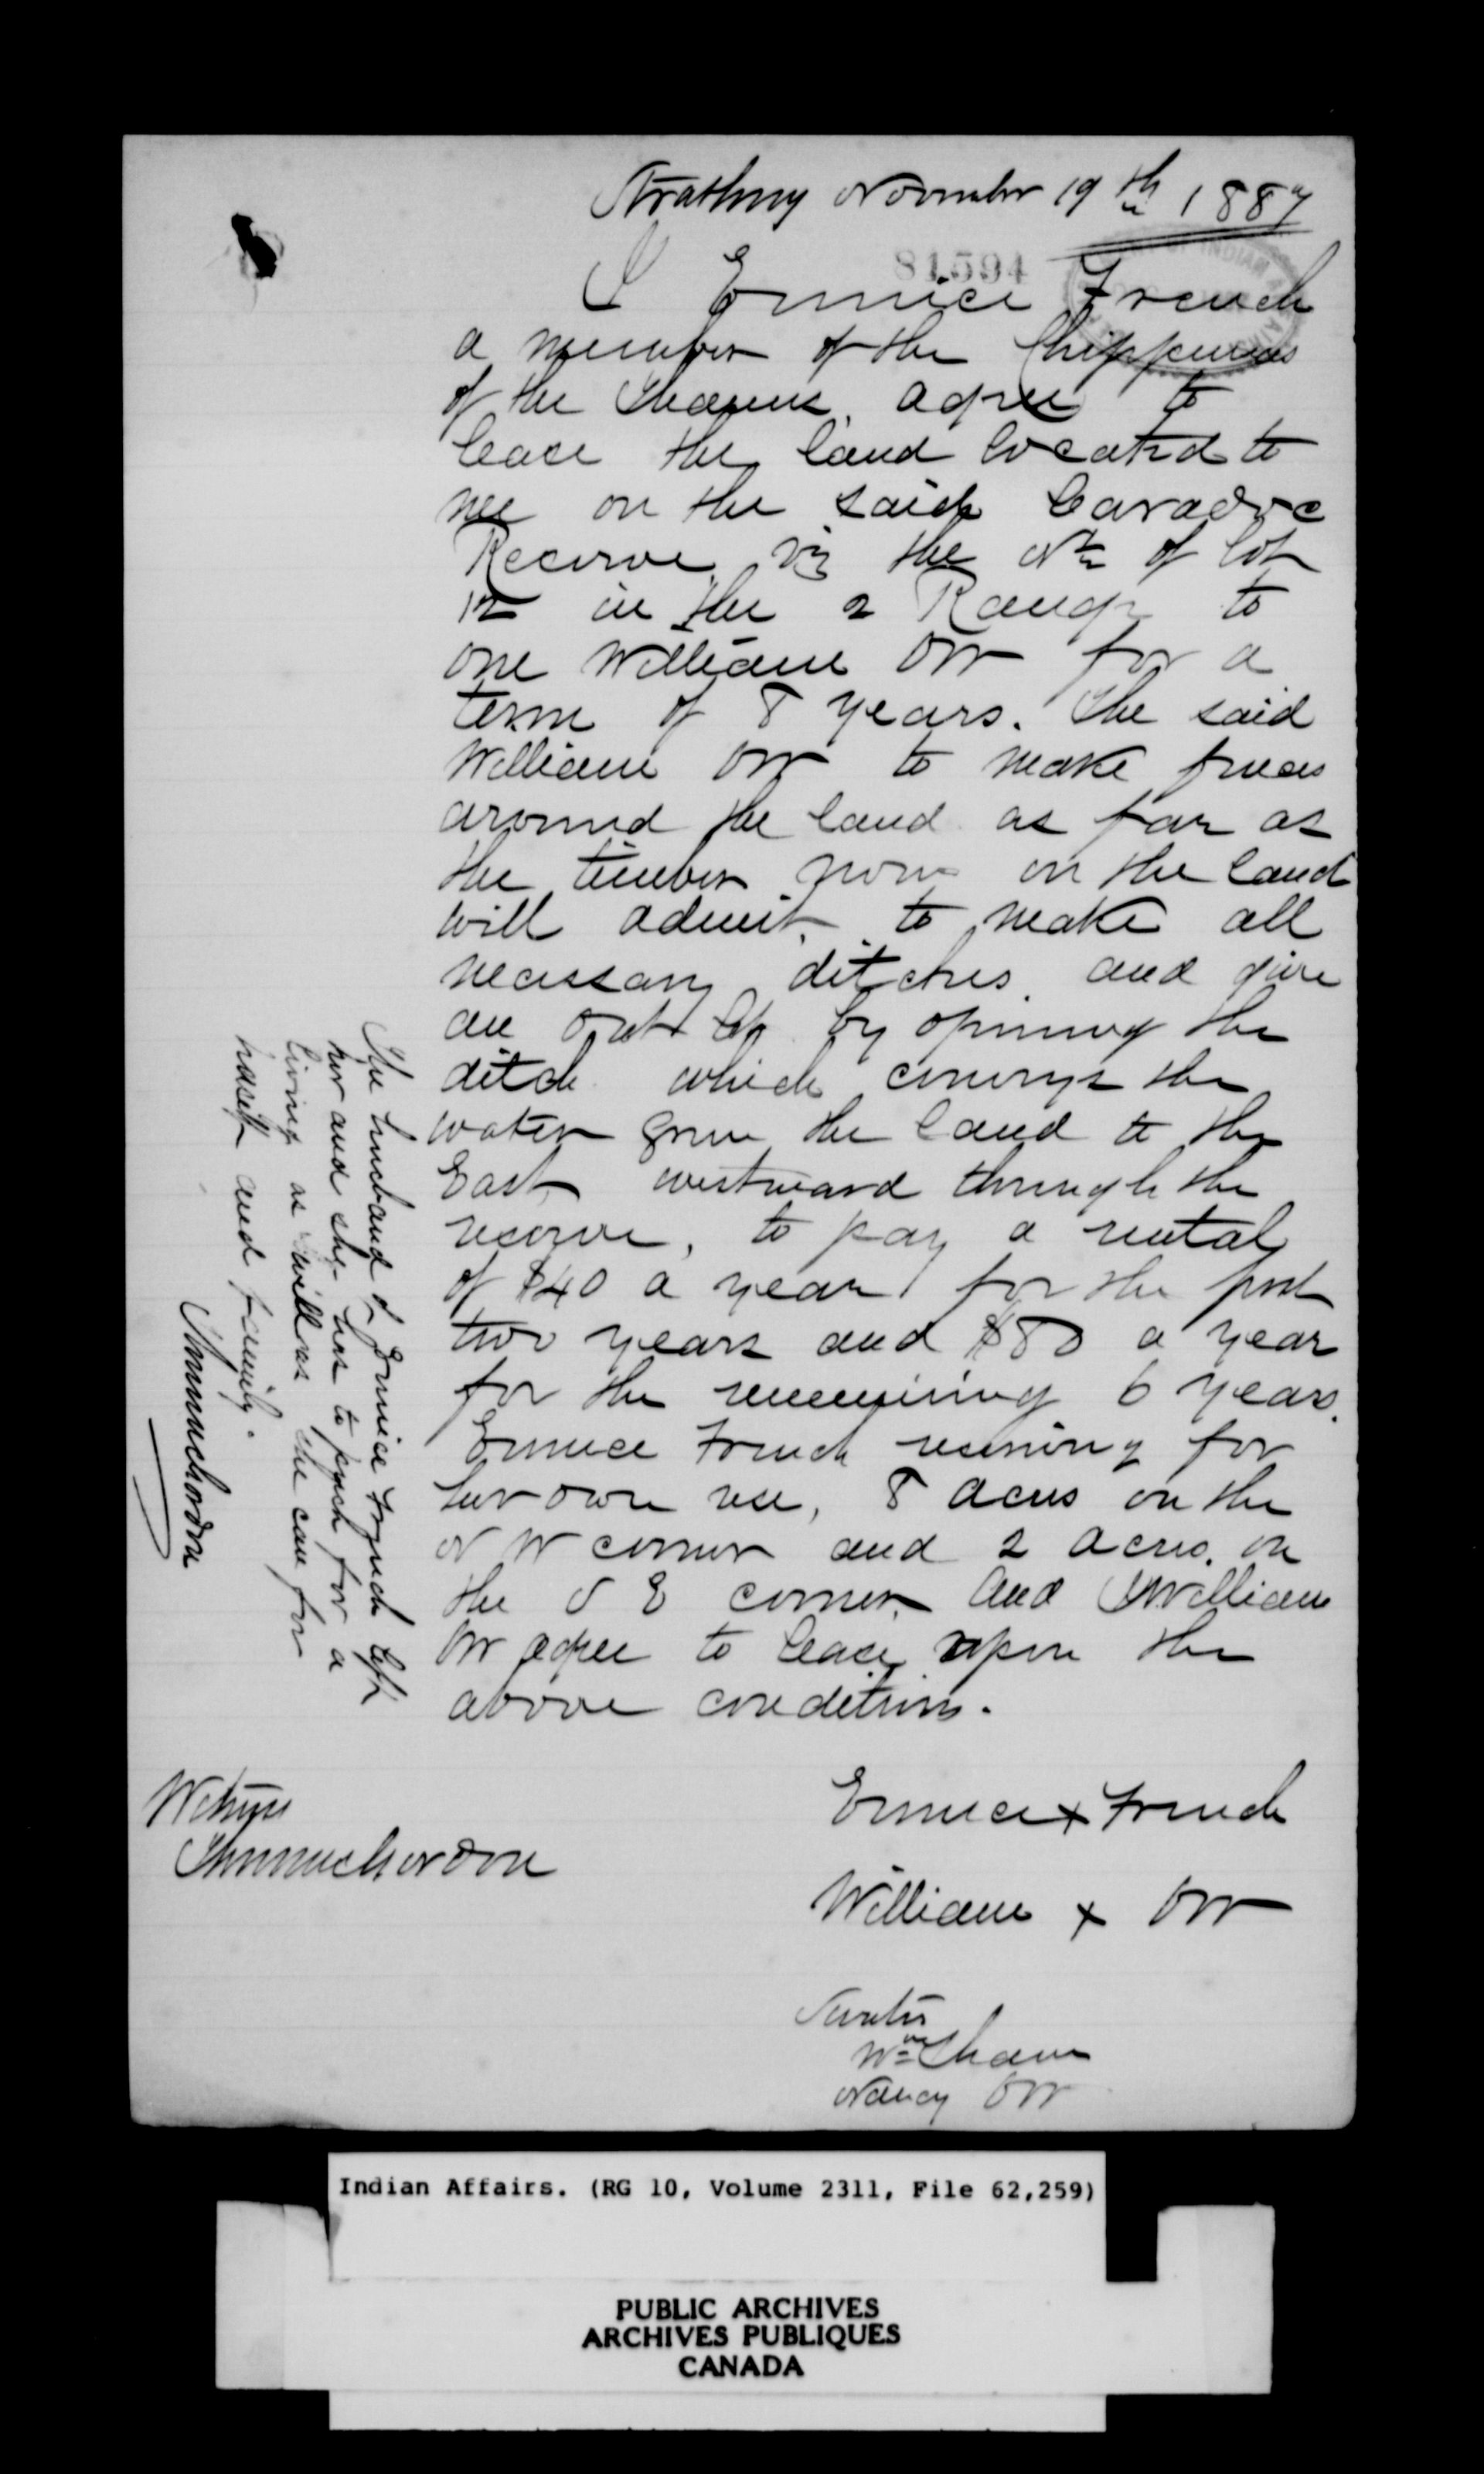 Strathroy November 19th 1887
81594
I Eunice French
a member of the Chippewas
of the Thames, agree to
lease the land located to
me on the said Caradoc
Reserve, viz the N½ of lot
12 in the 2 Range to
one William Orr for a
term of 8 years. The said
William Orr to make fences
around the land as far as
the timber now on the land
will admit, to make all
necessary ditches, and give
an outlet by opening the
ditch which conveys the
water from the land to the
East westward through the
reserve, to pay a rental
of $40 a year for the first
two years and $80 a year
for the remaining 6 years.
Eunice French reserving for
her own use, 8 acres on the
N W corner and 2 acres on
the S E corner. And I William
Orr agree to lease upon the
above conditions.
The husband of Eunice French left
her and she has to for a
living as well as she can for
herself and family.
Witness
Eunice x French
William x Orr
Wm
Nancy Orr
Indian Affairs. (RG 10, Volume 2311, File 62,259)
PUBLIC ARCHIVES
ARCHIVES PUBLIQUES
CANADA